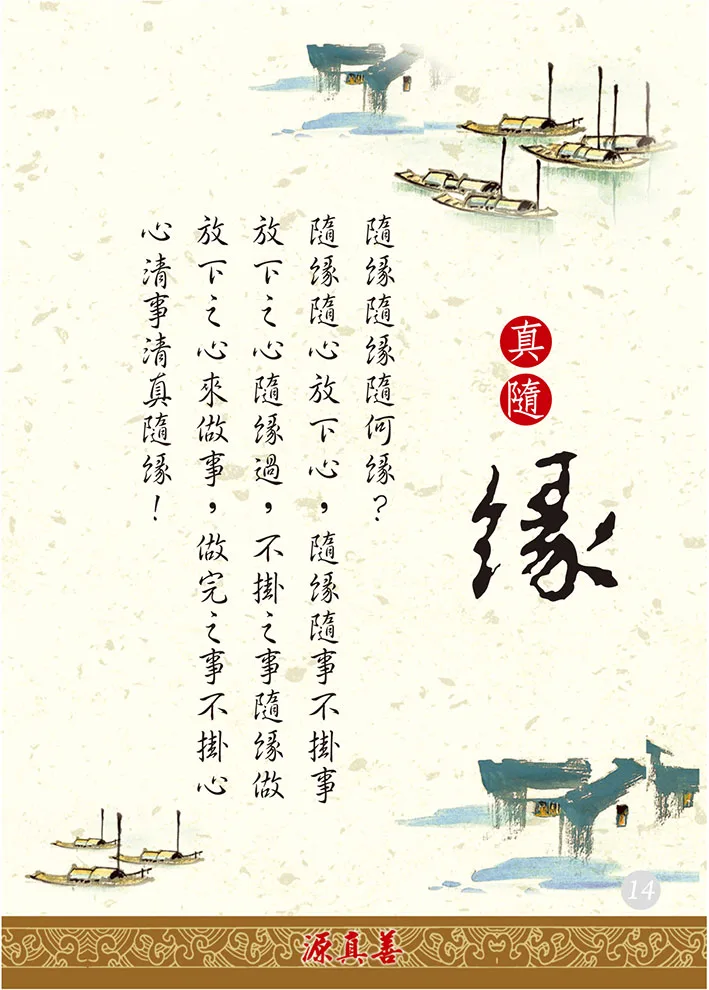 真
隨
緣
隨緣隨緣隨何緣？
隨緣隨心放下心，隨緣隨事不掛事
放下之心隨緣過，不掛之事隨緣做
放下之心來做事，做完之事不掛心
心清事清真隨緣！
14
源真善